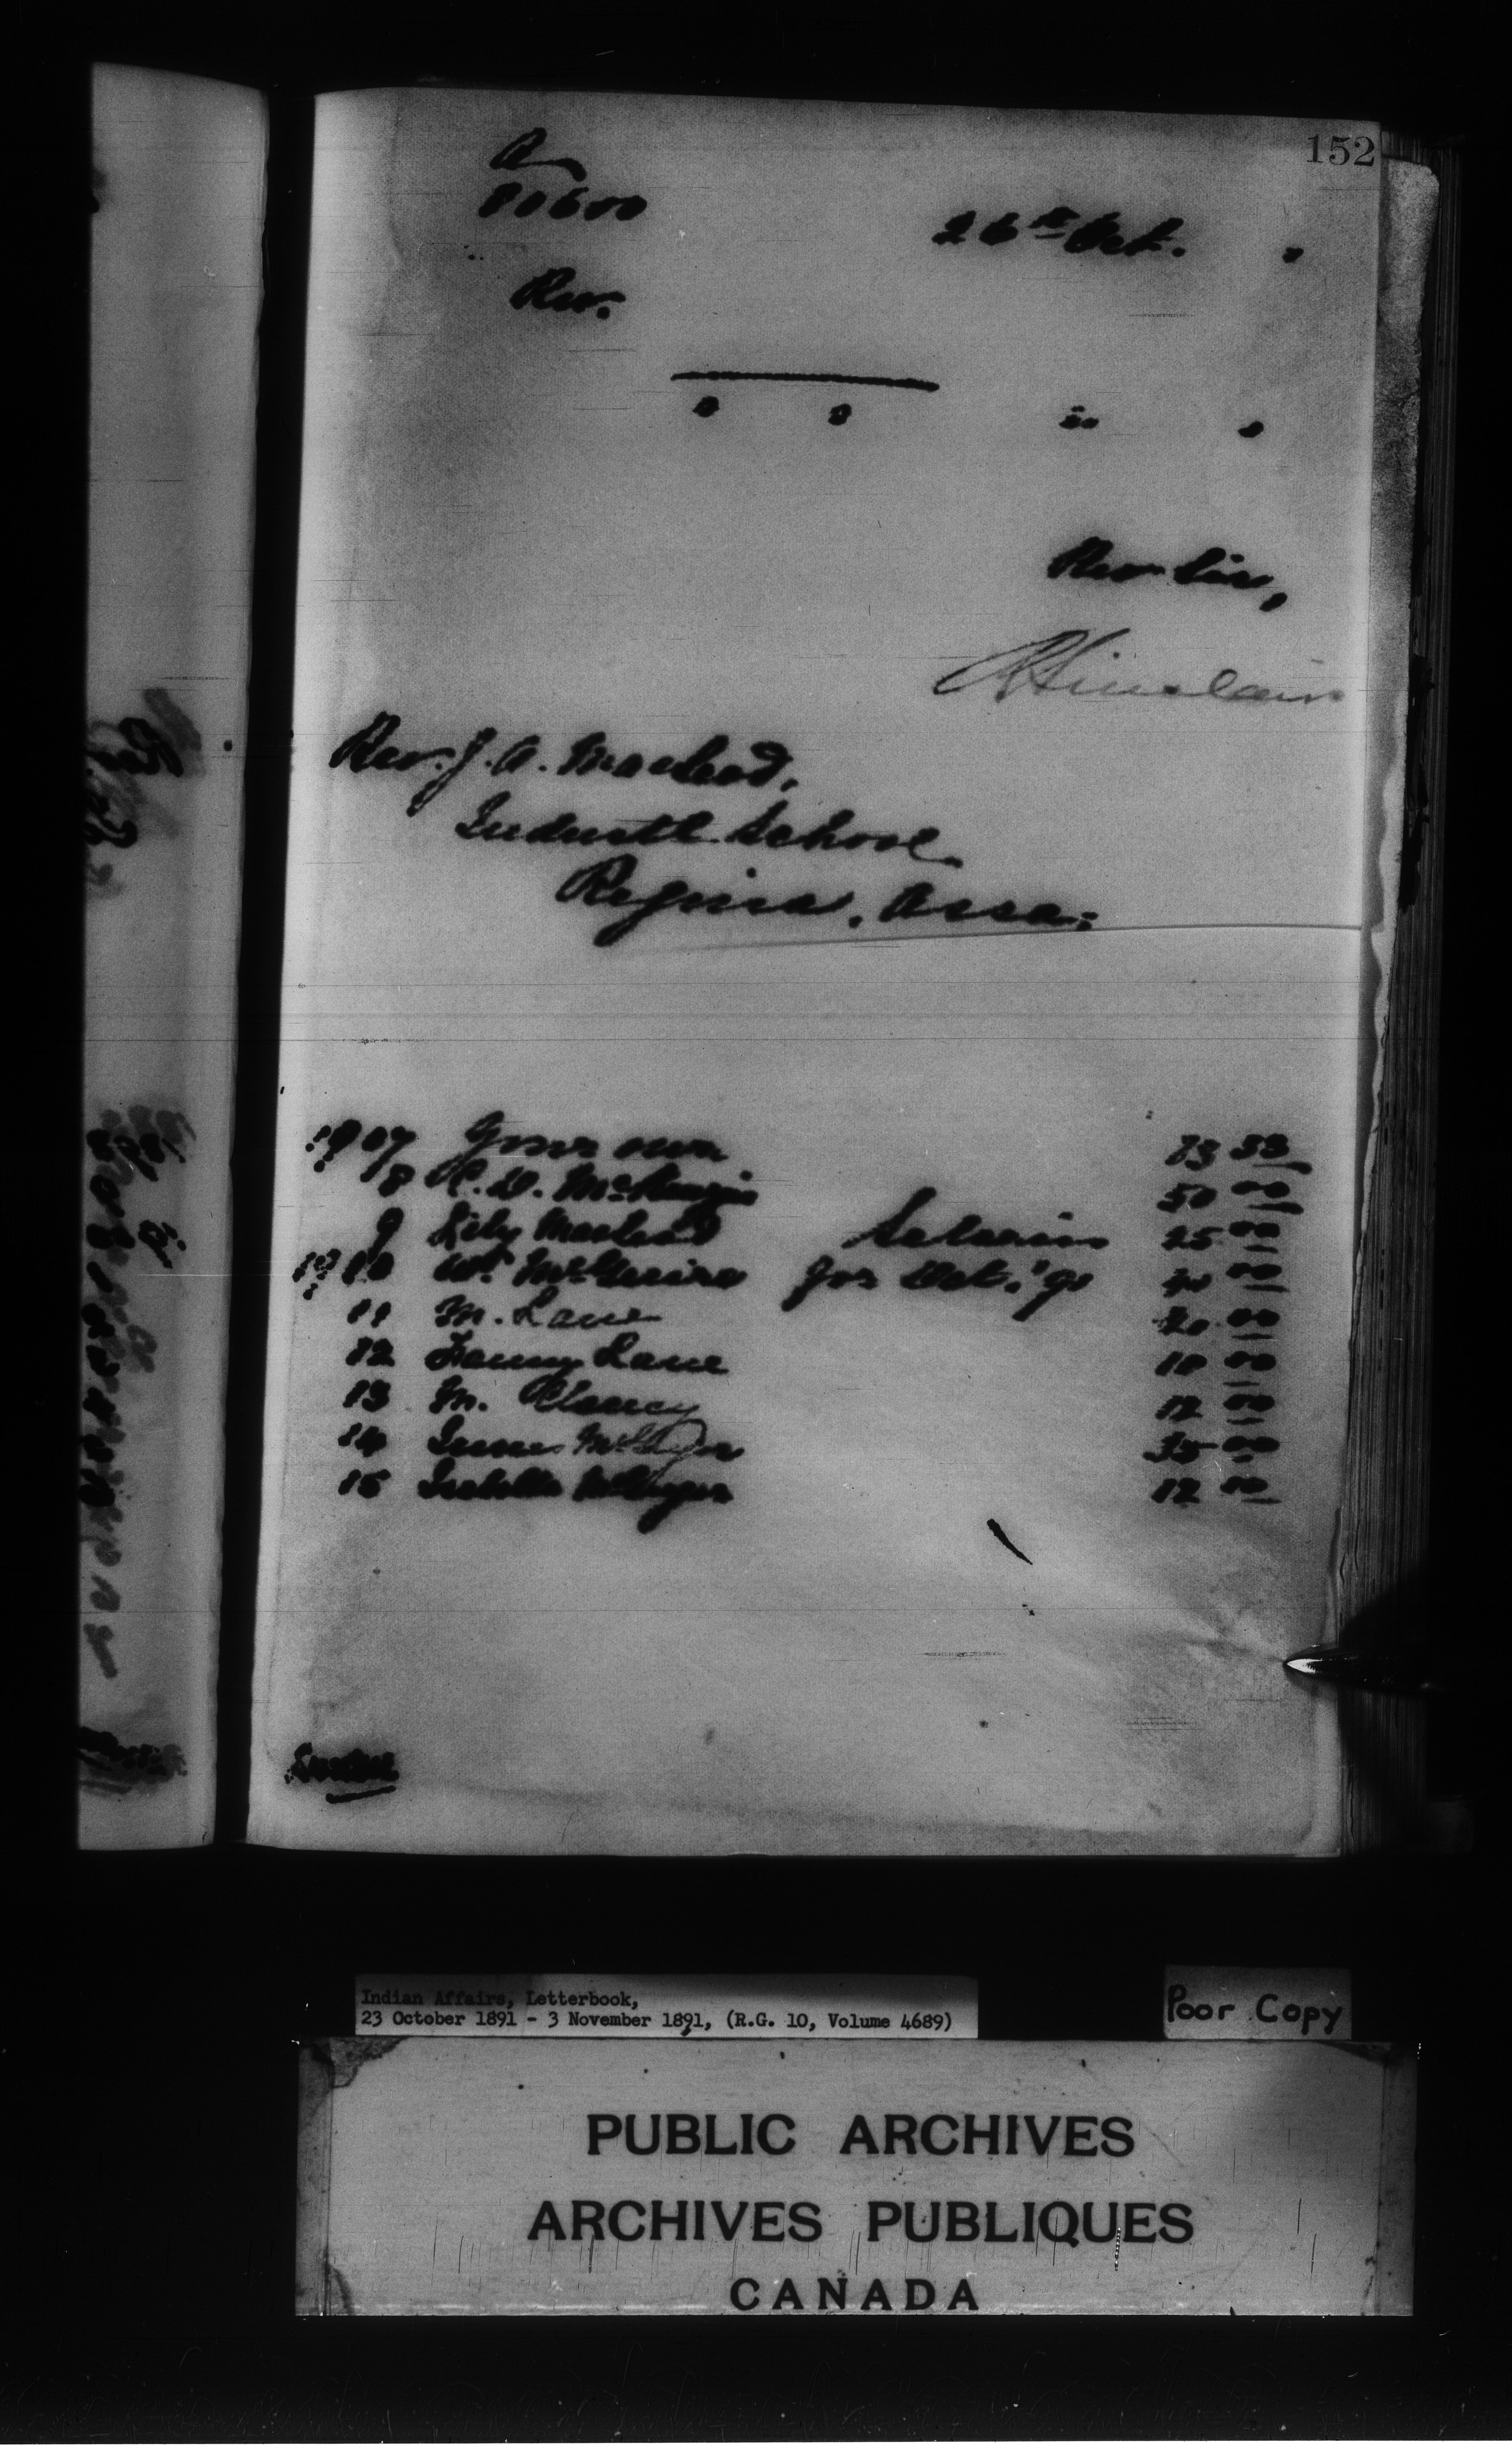 152
A
80600
26th Oct. "
Rev.
" " " "
Rev. Sir,
R Sinclair
Rev. J. A. Macleod,
Industl. School
Regina, Assa:
1907 Your own 83 33
8 R. D. McKenzie 50 00
9 Lily Macleod Salaries 25 00
1910 W. for Oct. '91 00
11 M. Lane 20 00
12 Fanny Lane 10 00
13 M. Clancy 12 00
14 35 00
15 Isabella 12 00
Indian Affairs, Letterbook,
23 October 1891 - 3 November 1891, (R.G. 10, Volume 4689)
Poor Copy
PUBLIC ARCHIVES
ARCHIVES PUBLIQUES
CANADA